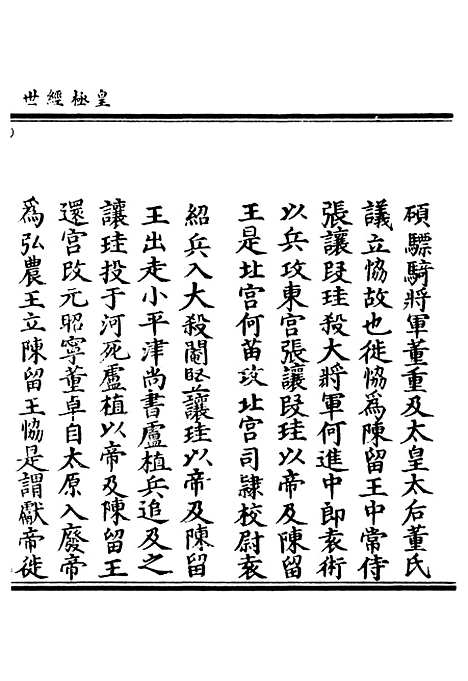 皇極經世
碩驃騎將軍董重及太皇太后董氏
議立恊故也徙恊為陳留王中常侍
張讓段珪殺大將軍何進中郎袁術
以兵攻東宫張讓段珪以帝及陳留
王是北宫何苗攻北宫司隸校尉袁
紹兵入大殺閹竪讓珪以帝及陳留
王出走小平津尚書盧植兵追及之
讓珪投于河死盧植以帝及陳留王
還宫改元昭寧董卓自太原入廢帝
為弘農王立陳留王恊是謂獻帝徙